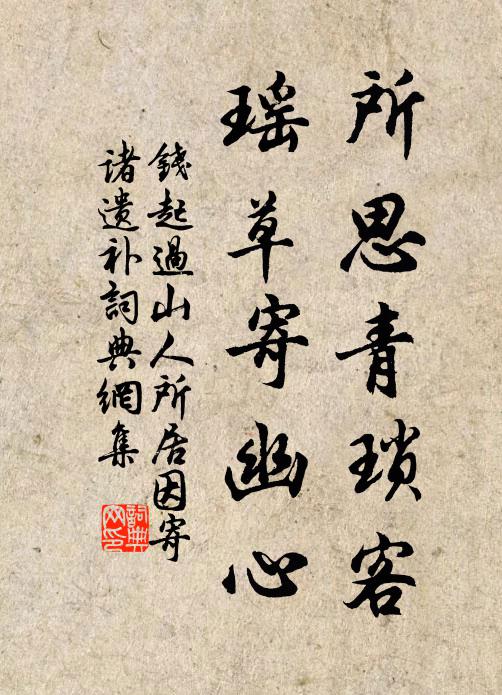 所思青琐客
瑶草寄幽心
錢起過山人所居因寄
诸遗补詞典網集
詞典
网印